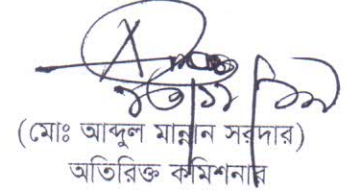 (মোঃ আব্দুল মান্নান সরদার)
অতিরিক্ত কমিশনার